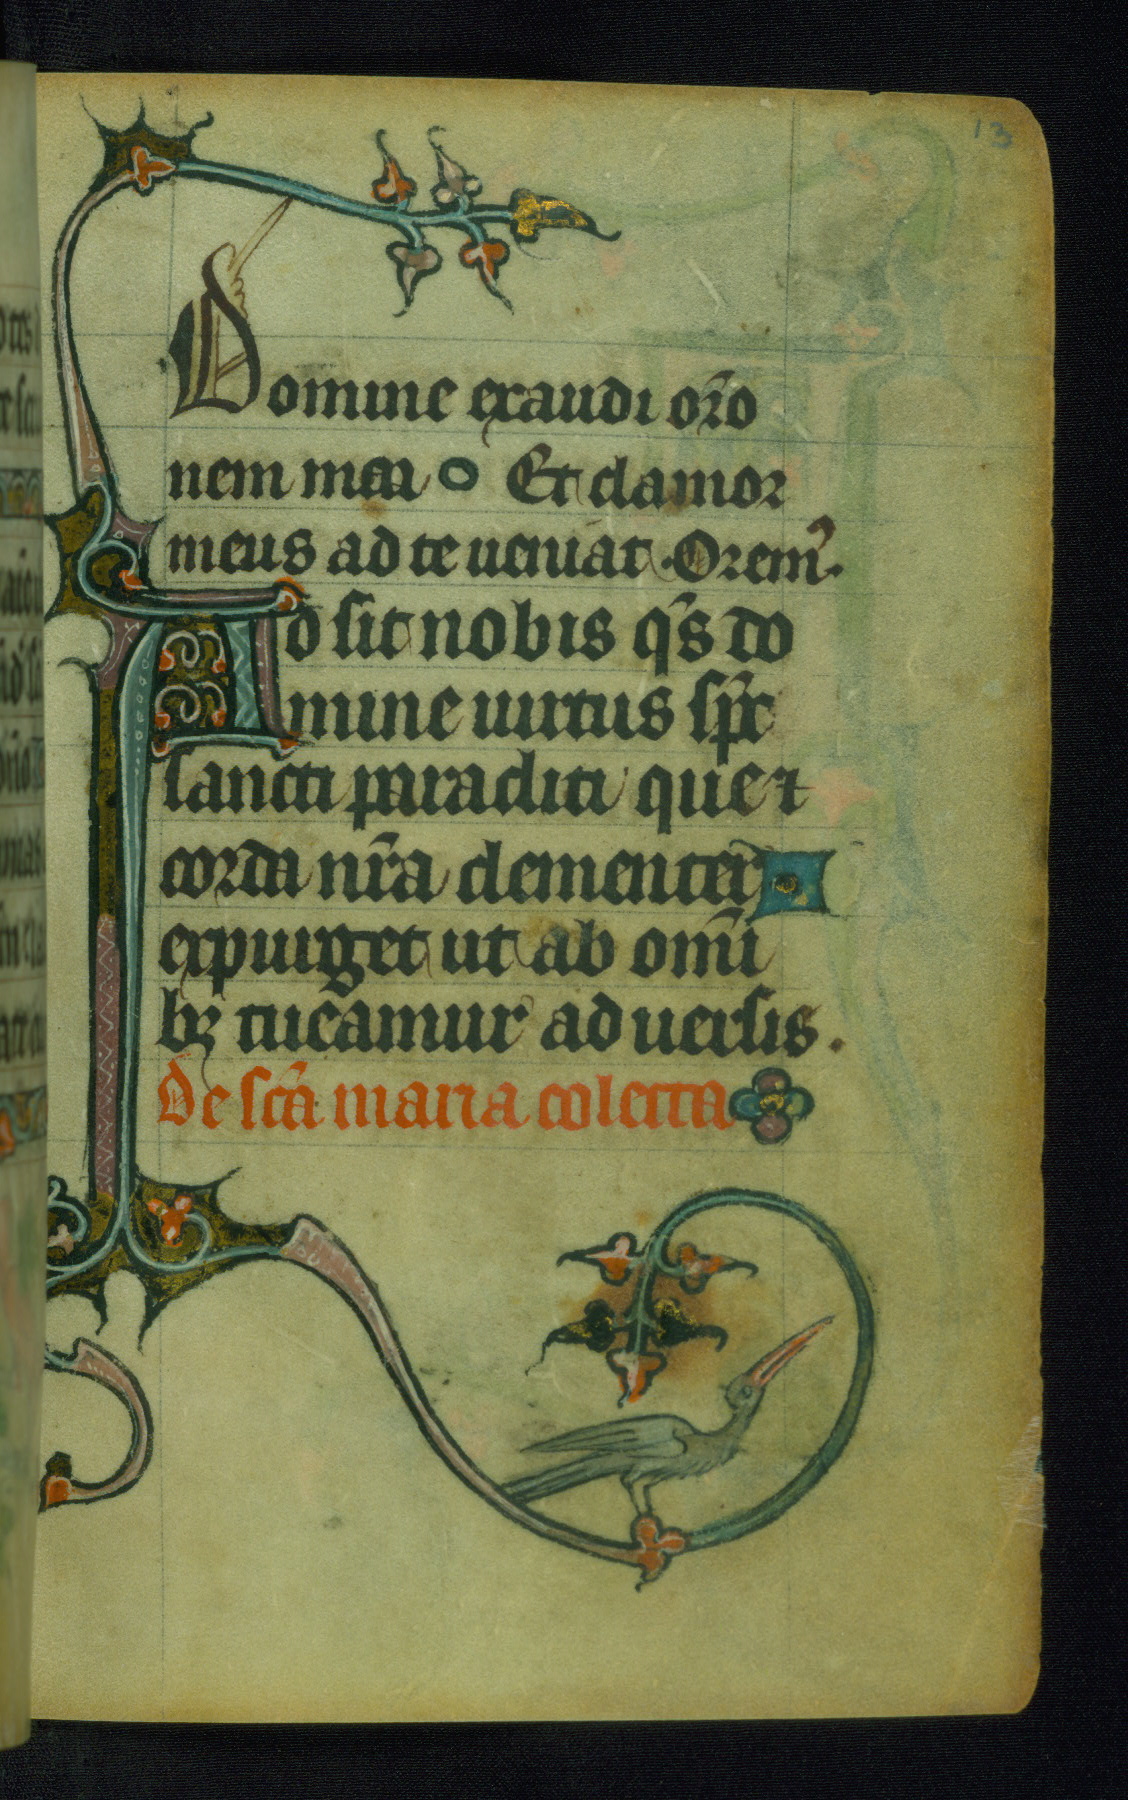 13
Domine exaudi or̄o
nem mea o Et clamor
meus ad te ueniat. Orem⁹.
Ad sit nobis q̄s do
mine uirtus sp̄c
sancti paracliti que ⁊
corda nr̄a clementer
expurget ut ab om̄i
bꝫ tueamur aduersis.
De sc̄a maria colecta